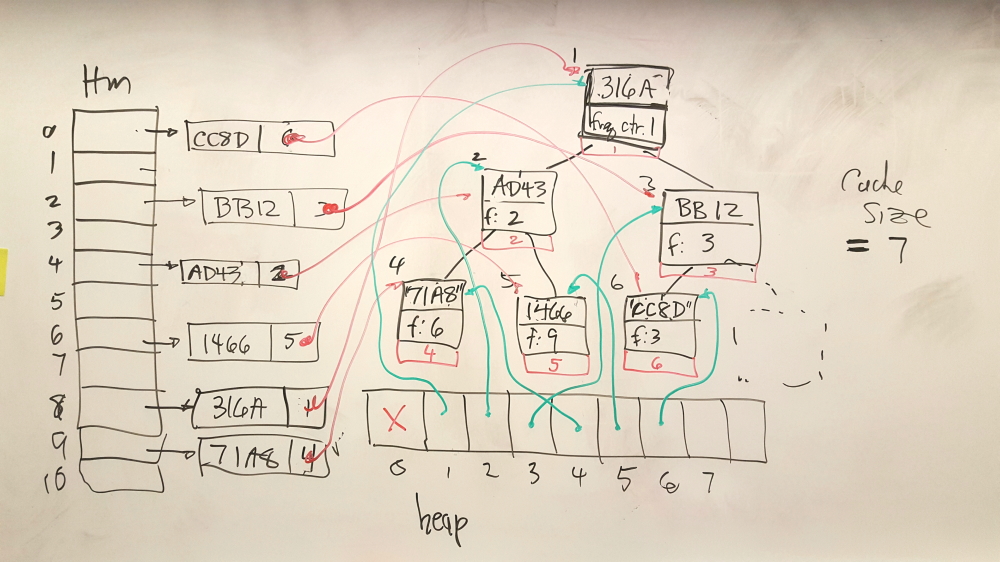 Hm
0
1
2
3
4
5
6
7
8
9
10
CC8D 6
BB12 3
AD43 2
1466 5
316A 1
71A8 4
1
316A
freq ctr. 1
1
2
AD43
f: 2
2
3
BB12
f: 3
3
4
"71A8"
f: 6
4
5
1466
f: 9
5
6
"CC8D"
f: 3
6
Cache
Size
= 7
X
0 1 2 3 4 5 6 7
heap